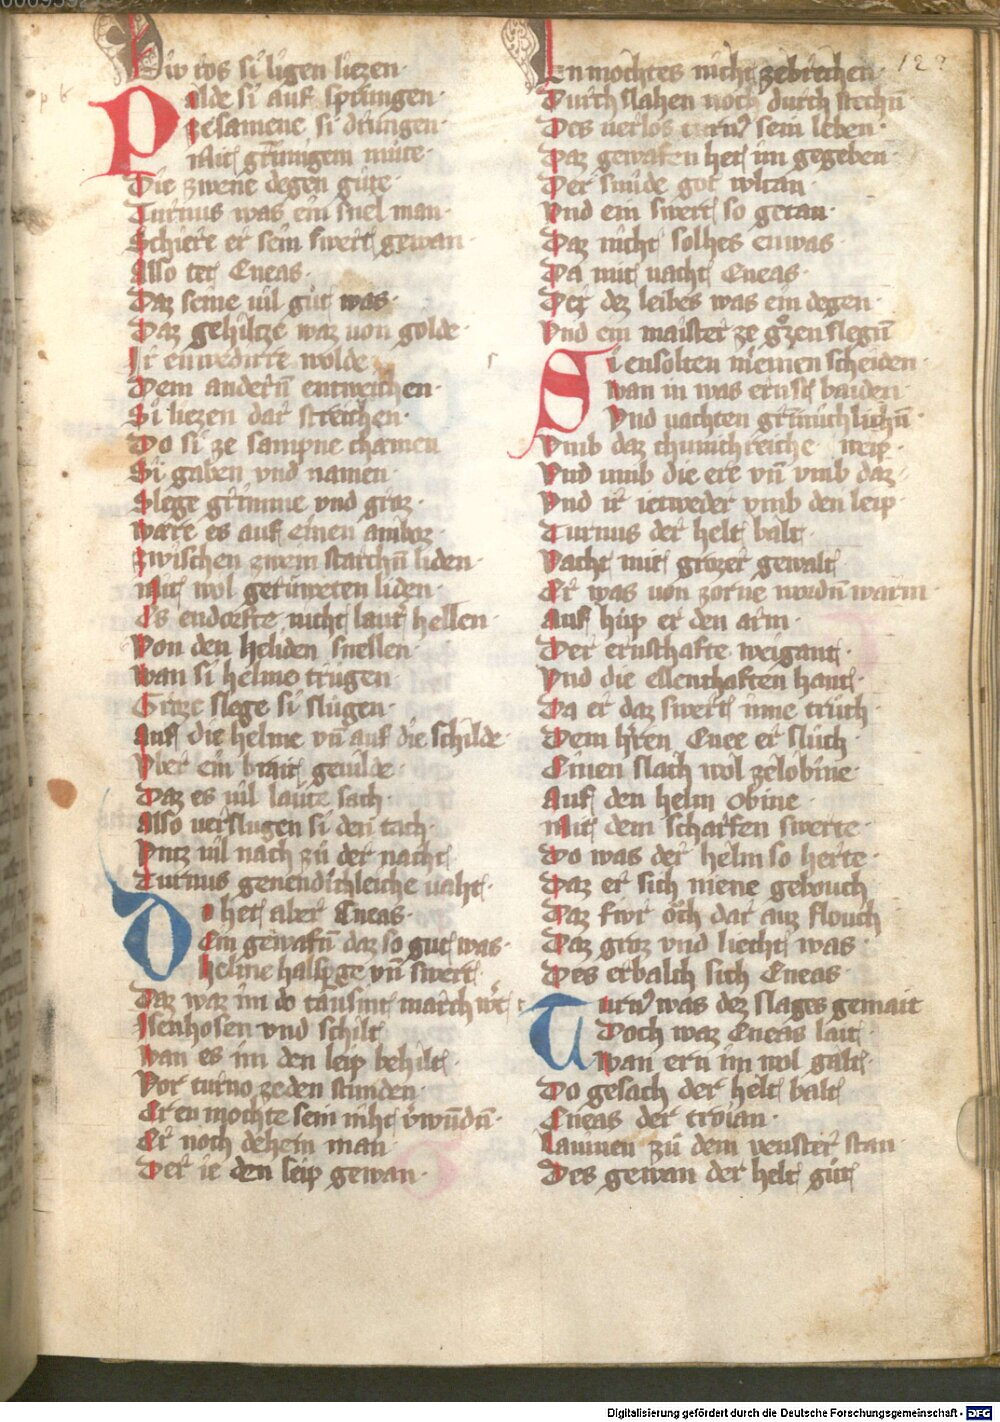 Div ros si ligen liezen·
Palde si auf sprungen·
zesamene si drungen·
Mit grimigem mute·
Die zwene degen gute·
Turnus was ein snel man·
Schiere er sein swert gewan·
Also tet Eneas·
Daz seine vil gut was·
Daz gehiltze waz von golde·
Ir enwedirre wolde
Dem andern entweichen·
Si liezen dar streichen·
Do si ze sampne chamen
Si gaben vnd namen·
Slege grimme vnd groz·
ware es auf einen anboz·
zwischen zwein starchn liden·
mit wol getuweten liden·
Es endorfte nicht laut hellen·
Von den heliden snellen·
wan si helme trugen·
Groze slege si slugen·
Auf die helme vn auf die schilde·
Vber ein brait gevilde·
Daz es vil laute sach·
Also verslugen si den tach·
Vntz vil nach zu der nacht
Turnus genendichleiche vaht·
Do het aber Eneas·
Ein gewafn daz so gut was·
helme halsperge vn swert·
Daz waz im do tausint march wert
Isenhosen vnd schilt
wan es im den leip behilt·
Vor turno zeden stunden·
Er en mochte sein niht verwundn·
Er noch dehein man
Der ie den leip gewan·
127
En mochtes nicht zebrechen·
Durch slahen noch durch stechn
Des verlos turnus sein leben·
Daz gewafen het im gegeben
Der smide got wlcan·
Vnd ein swert so getan·
Daz nicht solhes enwas·
Da mit vacht Eneas·
Der dez leibes was ein degen·
Vnd ein maister ze grozen slegn
Si ensolten niemen scheiden·
wan in was ernst baiden·
Vnd vachten grimichlichn·
Vmb daz chunichreiche·
Vnd umb die ere vn vmb daz weip·
Vnd ir ietweder vmb den leip
Turnus der helt balt·
Vacht mit grozer gewalt
Er was von zorne wordn warm·
Auf hup er den arm·
Der ernsthafte weigant·
Vnd die ellenthaften hant·
Da er daz swert inne truch·
Dem hren Enee er sluch·
Einen slach wol zelobine·
Auf den helm obine·
Mit dem scharfen swerte·
Do was der helm so herte·
Daz er sich niene gebouch
Daz fiwr och dar auz flouch
Daz groz vnd liecht was·
Des erbalch sich Eneas·
Turnus was dez slages gemait
Doch waz Eneas lait·
wan ern im wol galt·
Do gesach der helt balt
Eneas der troian·
Lauinen zu dem venster stan·
Des gewan der helt gut
Digitalisierung gefördert durch die Deutsche Forschungsgemeinschaft - DFG